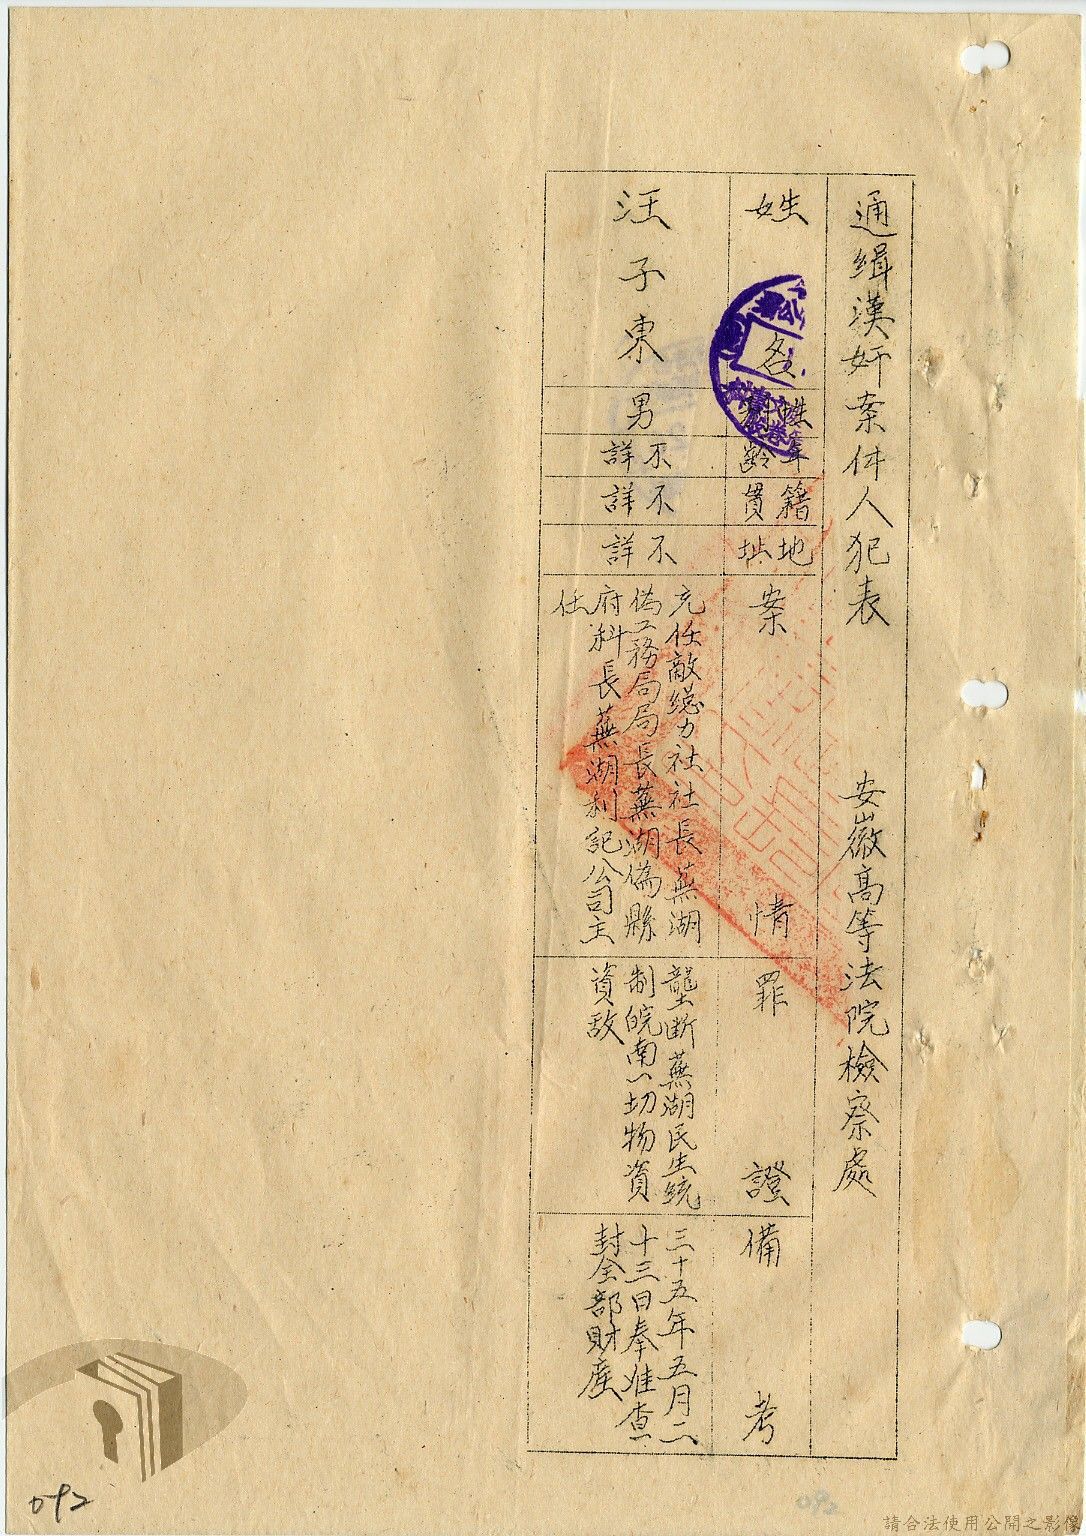 通緝漢奸案件人犯表　安徽高等法院檢察處
姓名
性別
年齡
籍貫
地址
案情
罪證
備考
汪子東
男
不詳
不詳
不詳
充任敵總力社社長蕪湖
偽工務局局長蕪湖偽縣
府科長蕪湖利記公司主
任
壟斷蕪湖民生統
制皖南一切物資
資敵
三十五年五月二
十三日奉准查
封全部財產
092
092
請合法使用公開之影像